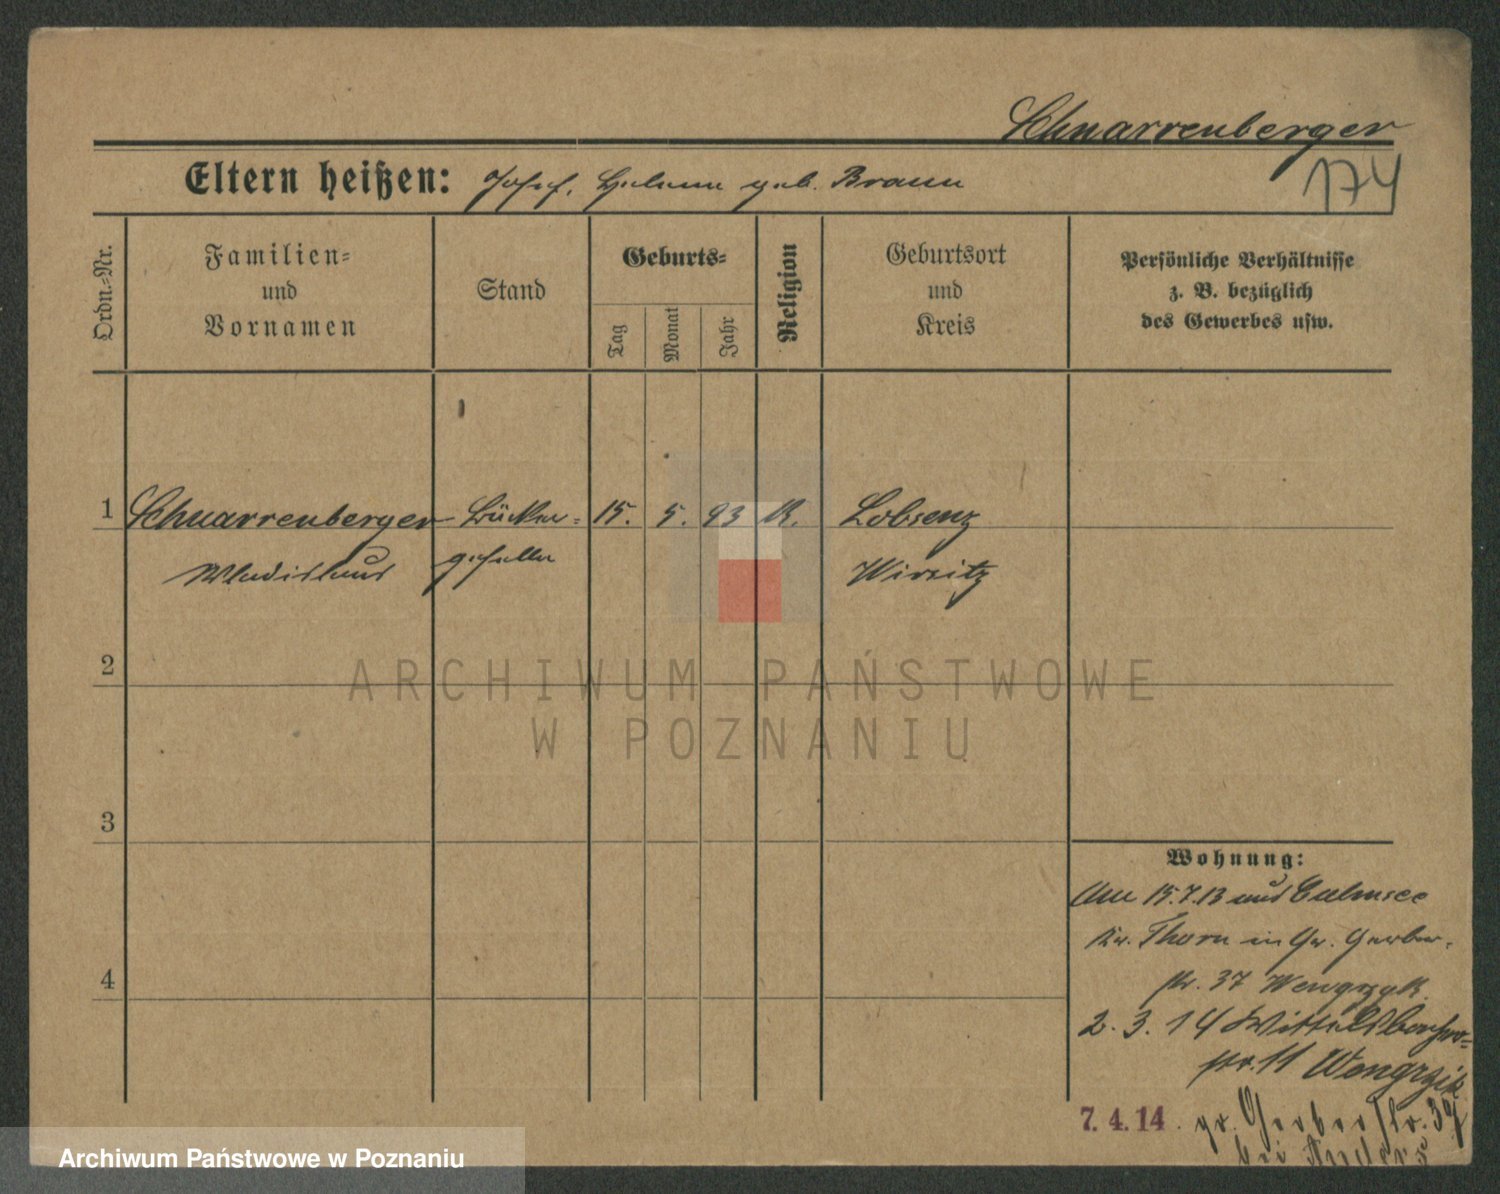 Schnarrenberger
174
Eltern heißen: Josef, Helene geb. Braun
Ordn.-Nr.
Familien-
und
Vornamen
Stand
Geburts-
Tag
Monat
Jahr
Religion
Geburtsort
und
Kreis
Persönliche Verhältnisse
z. B. bezüglich
des Gewerbes usw.
1 Schnarrenberger Bäcker- 15. 5. 93 K. Lobsenz
Wladislaus geselle Wirsitz
2
ARCHIWUM PAŃSTWOWE
W POZNANIU
3
4
Wohnung:
Am 15.7.13 aus Culmsee
Kr. Thorn in Gr. Gerber-
str. 37 Wengrzyk
2. 3. 14 Wittelsbacher-
str. 11 Wengrzik
7. 4. 14. gr. Gerberstr. 37
bei
Archiwum Państwowe w Poznaniu